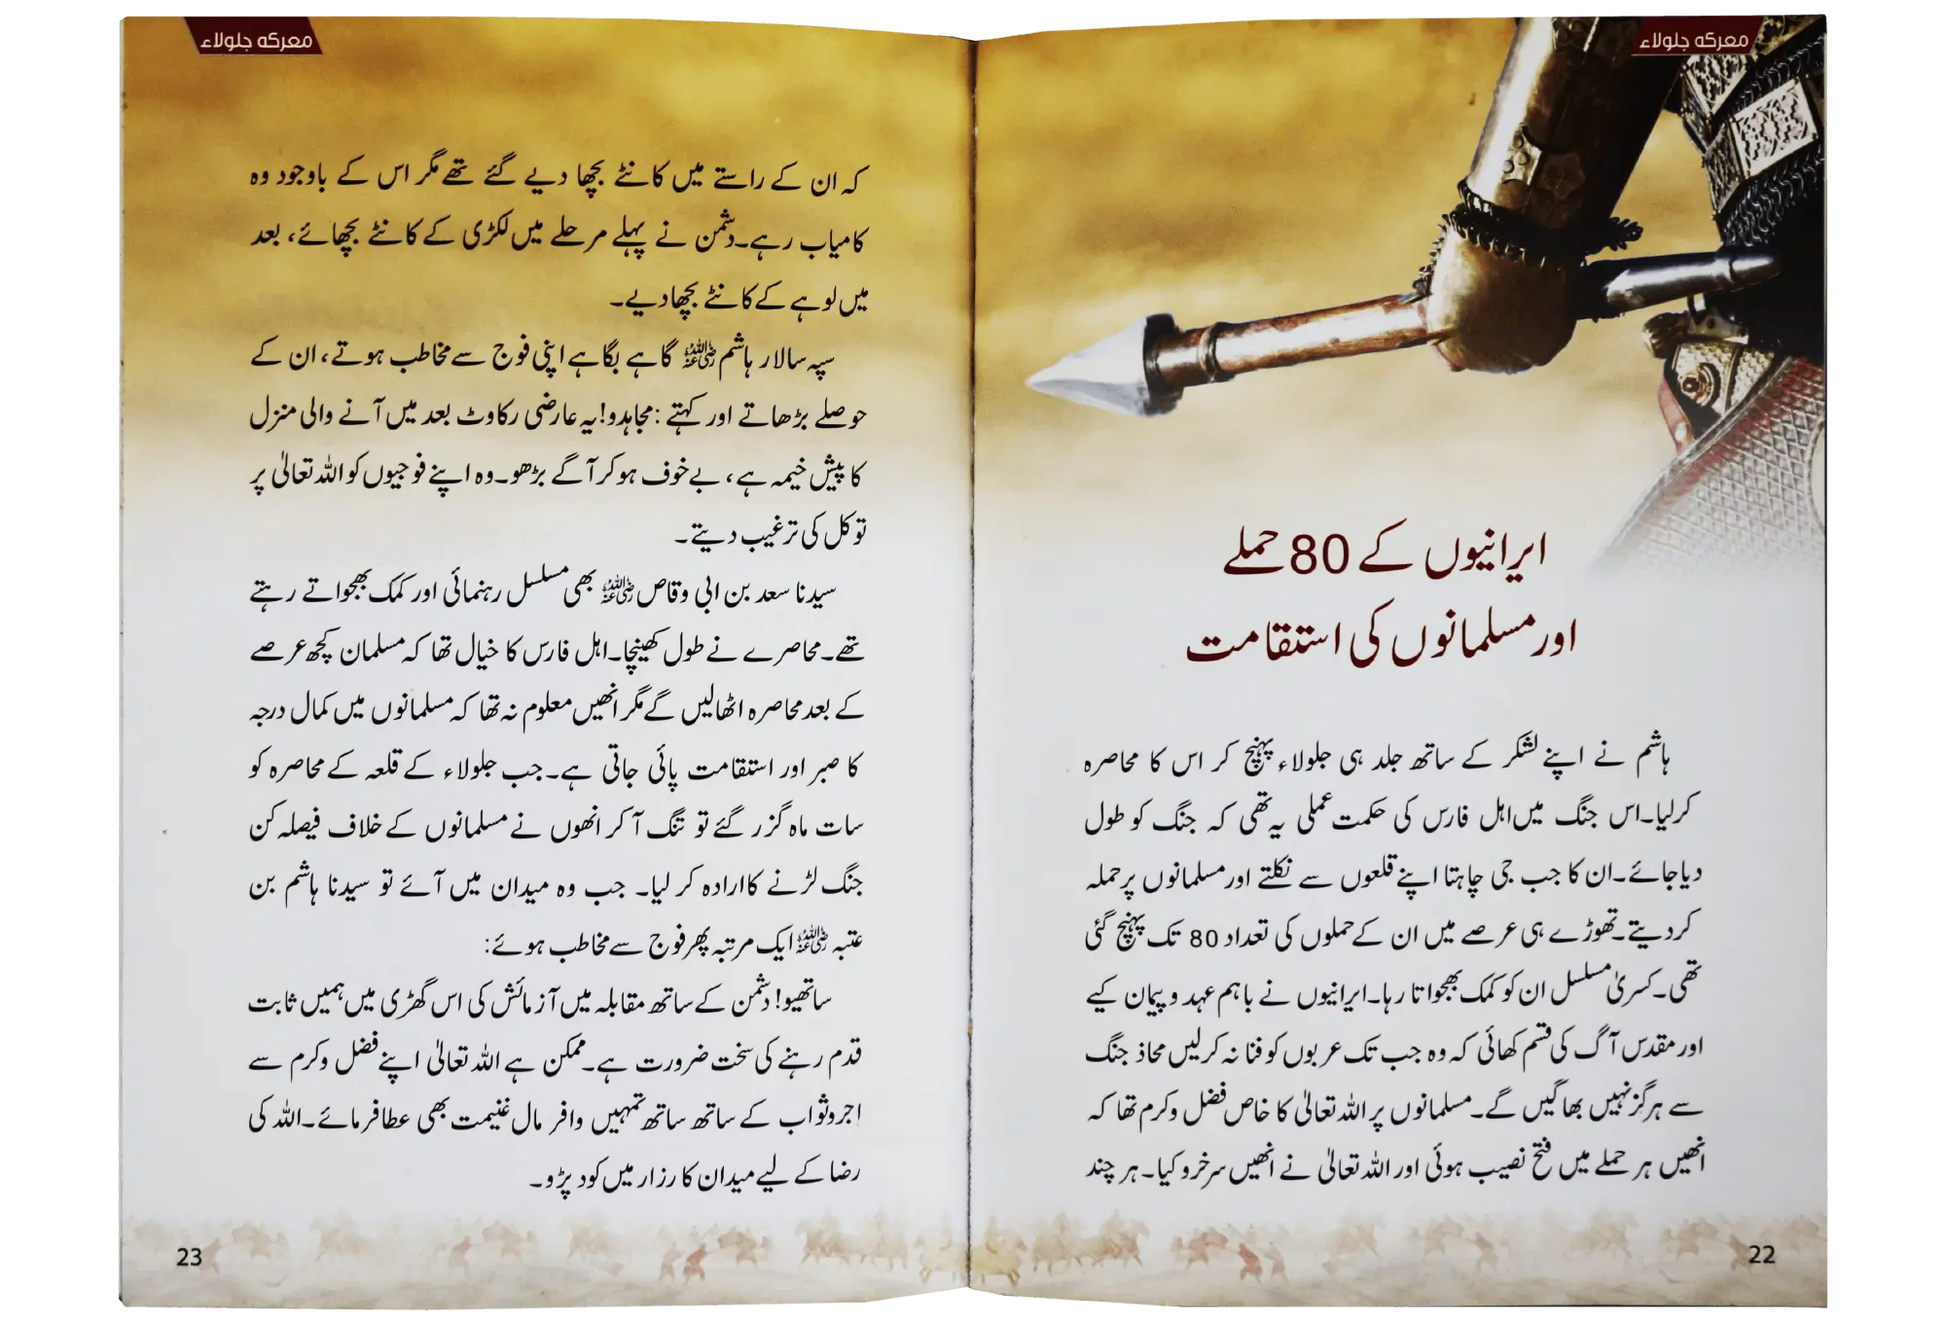 معرکہ جلولاء
ایرانیوں کے 80 حملے
اور مسلمانوں کی استقامت
ہاشم نے اپنے لشکر کے ساتھ جلد ہی جلولاء پہنچ کر اس کا محاصرہ
کرلیا۔ اس جنگ میں اہل فارس کی حکمت عملی یہ تھی کہ جنگ کو طول
دیا جائے۔ ان کا جب جی چاہتا اپنے قلعوں سے نکلتے اور مسلمانوں پر حملہ
کردیتے۔ تھوڑے ہی عرصے میں ان کے حملوں کی تعداد 80 تک پہنچ گئی
تھی۔ کسریٰ مسلسل ان کو کمک بھجواتا رہا۔ ایرانیوں نے باہم عہد و پیمان کیے
اور مقدس آگ کی قسم کھائی کہ وہ جب تک عربوں کو فنا نہ کرلیں محاذ جنگ
سے ہرگز نہیں بھاگیں گے۔ مسلمانوں پر اللہ تعالیٰ کا خاص فضل وکرم تھا کہ
انھیں ہر حملے میں فتح نصیب ہوئی اور اللہ تعالیٰ نے انھیں سرخرو کیا۔ ہر چند
22
معرکہ جلولاء
کہ ان کے راستے میں کانٹے بچھا دیے گئے تھے مگر اس کے باوجود وہ
کامیاب رہے۔ دشمن نے پہلے مرحلے میں لکڑی کے کانٹے بچھائے، بعد
میں لوہے کے کانٹے بچھا دیے۔
سپہ سالار ہاشم رضی اللہ عنہ گاہے بگاہے اپنی فوج سے مخاطب ہوتے، ان کے
حوصلے بڑھاتے اور کہتے: مجاہدو! یہ عارضی رکاوٹ بعد میں آنے والی منزل
کا پیش خیمہ ہے، بے خوف ہو کر آگے بڑھو۔ وہ اپنے فوجیوں کو اللہ تعالیٰ پر
توکل کی ترغیب دیتے۔
سیدنا سعد بن ابی وقاص رضی اللہ عنہ بھی مسلسل رہنمائی اور کمک بھجواتے رہتے
تھے۔ محاصرے نے طول کھینچا۔ اہل فارس کا خیال تھا کہ مسلمان کچھ عرصے
کے بعد محاصرہ اٹھالیں گے مگر انھیں معلوم نہ تھا کہ مسلمانوں میں کمال درجہ
کا صبر اور استقامت پائی جاتی ہے۔ جب جلولاء کے قلعہ کے محاصرہ کو
سات ماہ گزر گئے تو تنگ آ کر انھوں نے مسلمانوں کے خلاف فیصلہ کن
جنگ لڑنے کا ارادہ کر لیا۔ جب وہ میدان میں آئے تو سیدنا ہاشم بن
عتبہ رضی اللہ عنہ ایک مرتبہ پھر فوج سے مخاطب ہوئے:
ساتھیو! دشمن کے ساتھ مقابلہ میں آزمائش کی اس گھڑی میں ہمیں ثابت
قدم رہنے کی سخت ضرورت ہے۔ ممکن ہے اللہ تعالیٰ اپنے فضل وکرم سے
اجر و ثواب کے ساتھ ساتھ تمہیں وافر مال غنیمت بھی عطا فرمائے۔ اللہ کی
رضا کے لیے میدان کارزار میں کود پڑو۔
23